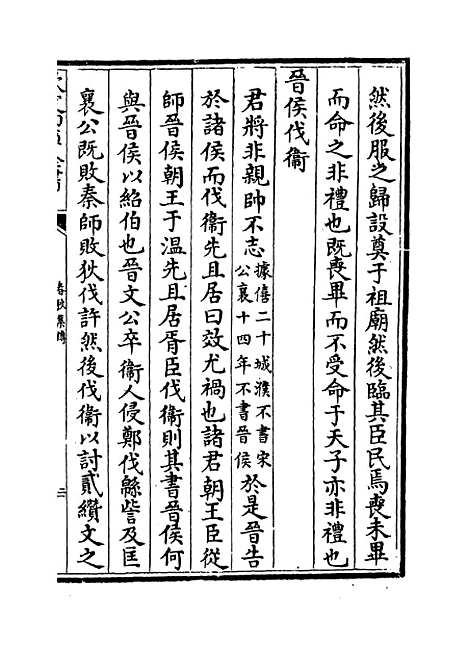 然後服之歸設奠于祖廟然後臨其臣民焉喪未畢
而命之非禮也既喪畢而不受命于天子亦非禮也
晉侯伐衞
君將非親帥不志據僖二十城濮不書宋公襄十四年不書晉侯於是晉告
於諸侯而伐衞先且居曰效尤禍也諸君朝王臣從
師晉侯朝王于温先且居胥臣伐衞則其書晉侯何
與晉侯以紹伯也晉文公卒衞人侵鄭伐緜訾及匡
襄公既敗秦師敗狄伐許然後伐衞以討貳纘文之
春秋集傳
三